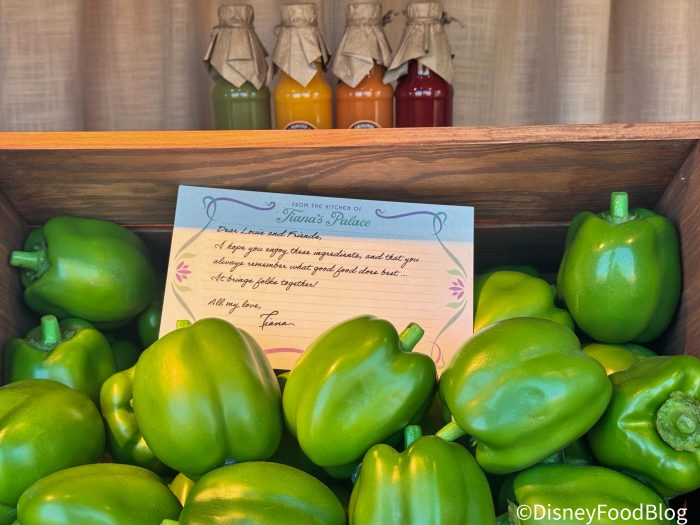 FROM THE KITCHEN OF
Tiana's Palace
Dear Louis and Friends,
I hope you enjoy these ingredients, and that you
always remember what good food does best...
It brings folks together!
All my love,
Tiana
©DisneyFoodBlog